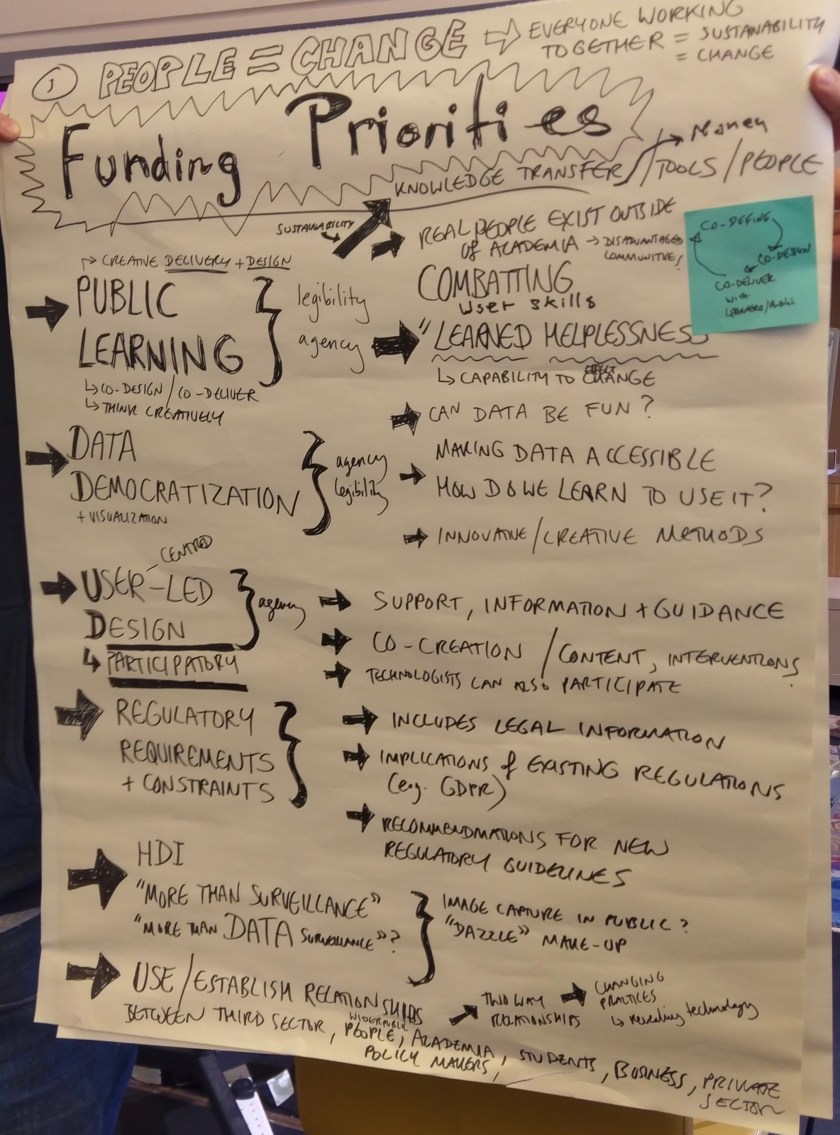 ① PEOPLE = CHANGE ⇨ EVERYONE WORKING
TOGETHER = SUSTAINABILITY
= CHANGE
Funding Priorities
KNOWLEDGE TRANSFER / TOOLS / PEOPLE
→ Money
SUSTAINABILITY
→ REAL PEOPLE EXIST OUTSIDE
OF ACADEMIA → DISADVANTAGED
COMMUNITIES!
CO-DEFINE
CO-DESIGN
CO-DELIVER
WITH
→ CREATIVE DELIVERY + DESIGN
→ PUBLIC
LEARNING
↳ CO-DESIGN / CO-DELIVER
↳ THINK CREATIVELY
legibility
agency
COMBATTING
user skills
→ "LEARNED HELPLESSNESS
↳ CAPABILITY TO EFFECT CHANGE
→ CAN DATA BE FUN?
→ DATA
DEMOCRATIZATION
+ VISUALIZATION
agency
legibility
→ MAKING DATA ACCESSIBLE
HOW DO WE LEARN TO USE IT?
→ INNOVATIVE / CREATIVE METHODS
CENTRED
→ USER-LED
DESIGN
↳ PARTICIPATORY
agency
→ SUPPORT, INFORMATION + GUIDANCE
→ CO-CREATION / CONTENT, INTERVENTIONS
→ TECHNOLOGISTS CAN ALSO PARTICIPATE
→ REGULATORY
REQUIREMENTS
+ CONSTRAINTS
→ INCLUDES LEGAL INFORMATION
→ IMPLICATIONS of EXISTING REGULATIONS
(eg. GDPR)
→ RECOMMENDMATIONS FOR NEW
REGULATORY GUIDELINES
→ HDI
"MORE THAN SURVEILLANCE"
"MORE THAN DATA SURVEILLANCE"?
IMAGE CAPTURE IN PUBLIC?
"DAZZLE" MAKE-UP
→ USE / ESTABLISH RELATIONSHIPS
BETWEEN THIRD SECTOR, PEOPLE, ACADEMIA, STUDENTS, BUSINESS, PRIVATE
SECTOR
POLICY MAKERS,
→ TWO WAY
RELATIONSHIPS
→ CHANGING
PRACTICES
↳ revealing technology